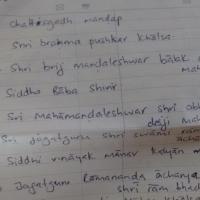 Chattisgadh mandap
Shri brahma pushkar khalsa
Shri brij mandaleshwar bālak
mah
Siddha Bāba Shivir
Sri Mahāmandaleshwar shri
deiji Mah
Sri Jagatguru Shri swami
āchā
Siddhi vināyak mānav Kalyān
Jagatguru Rāmananda āchārya
shri rām bhad